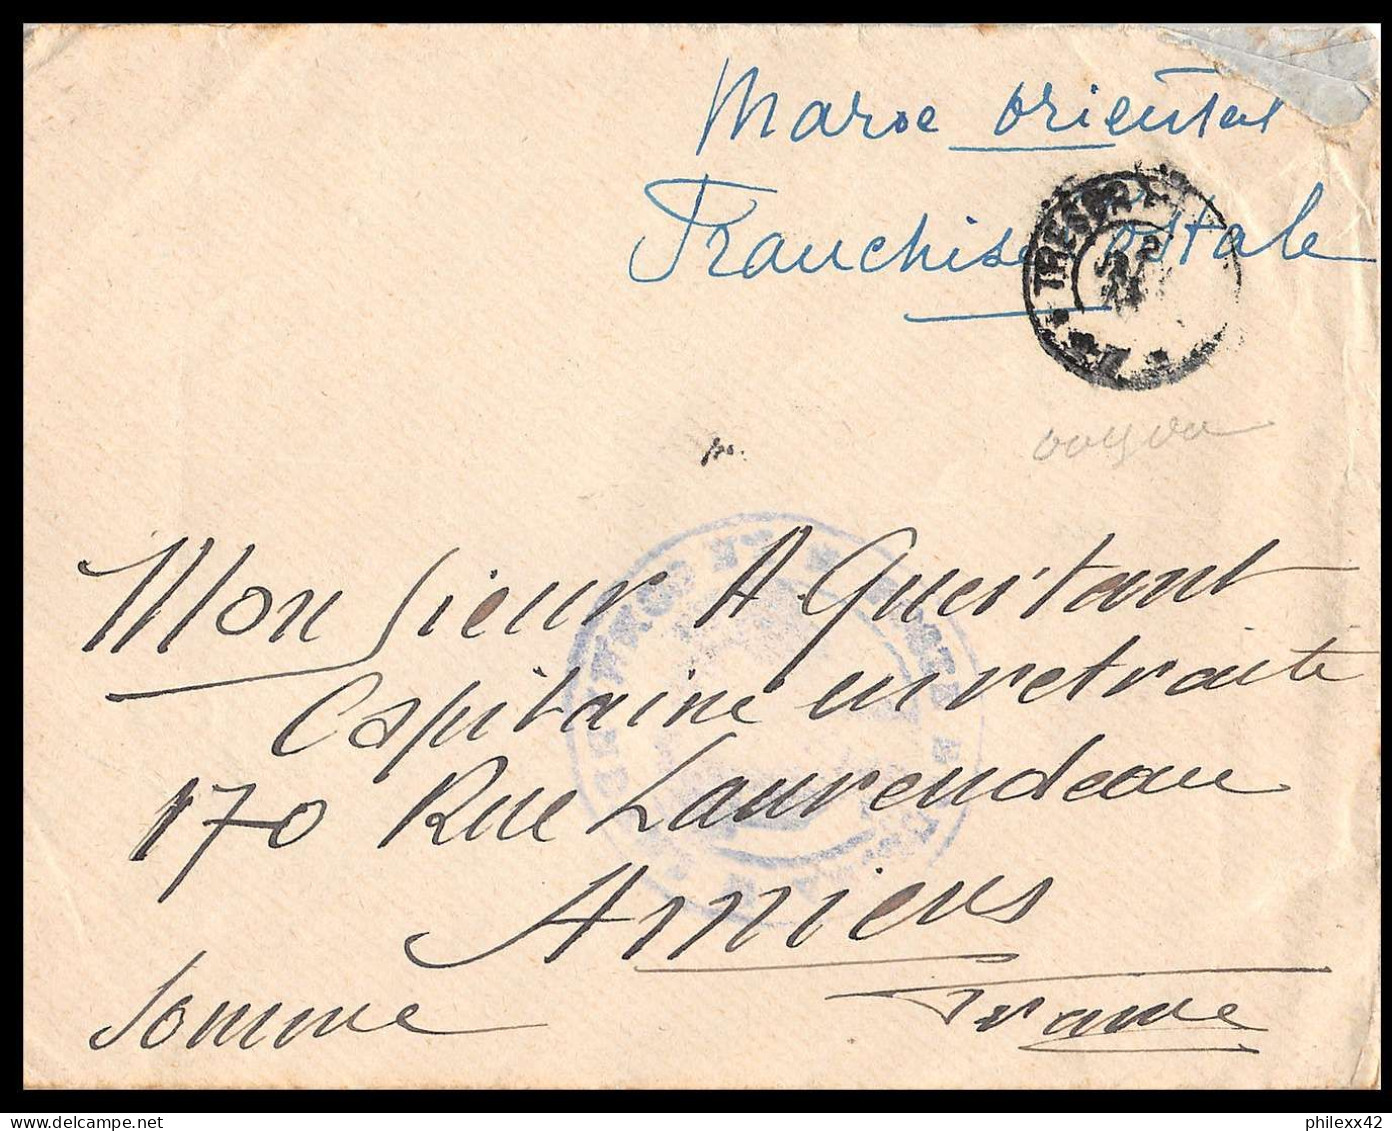 Maroc oriental
Franchise postale
TRESOR
Monsieur A Questant
Capitaine en retraite
170 Rue Laurendeau
Amiens
Somme
France
philexx42